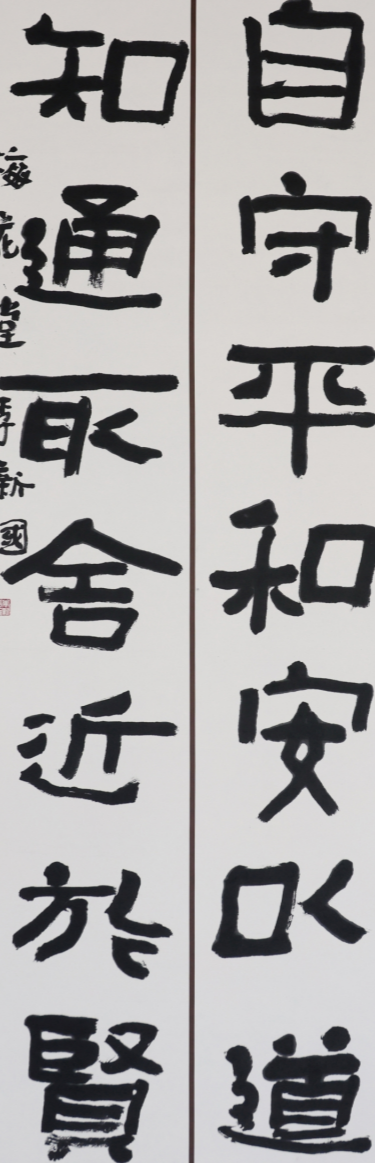 自守平和安以道
知通取舍近於賢
花堂李新國